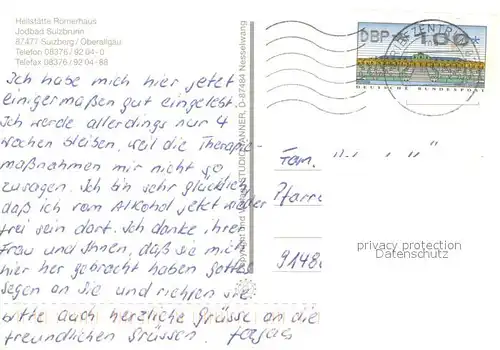 Heilstätte Römerhaus
Jodbad Sulzbrunn
87477 Sulzberg / Oberallgäu
Telefon 08376 / 92 04-0
Telefax 08376 / 92 04-88
Ich habe mich hier jetzt
einigermaßen gut eingelebt.
Ich werde allerdings nur 4
Wochen bleiben, weil die Therapie-
maßnahmen mir nicht so
zusagen. Ich bin sehr glücklich,
daß ich vom Alkohol jetzt wieder
frei sein darf. Ich danke ihrer
Frau und Ihnen, daß sie mich
hier her gebracht haben Gottes
Segen an Sie und richten Sie
bitte auch herzliche Grüsse an die
freundlichen Grüssen.
TANNER, D-87484 Nesselwang
DBP 100
DEUTSCHE BUNDESPOST
BRIEFZENTRUM
Fam.
Pfarr
9148
privacy protection
Datenschutz